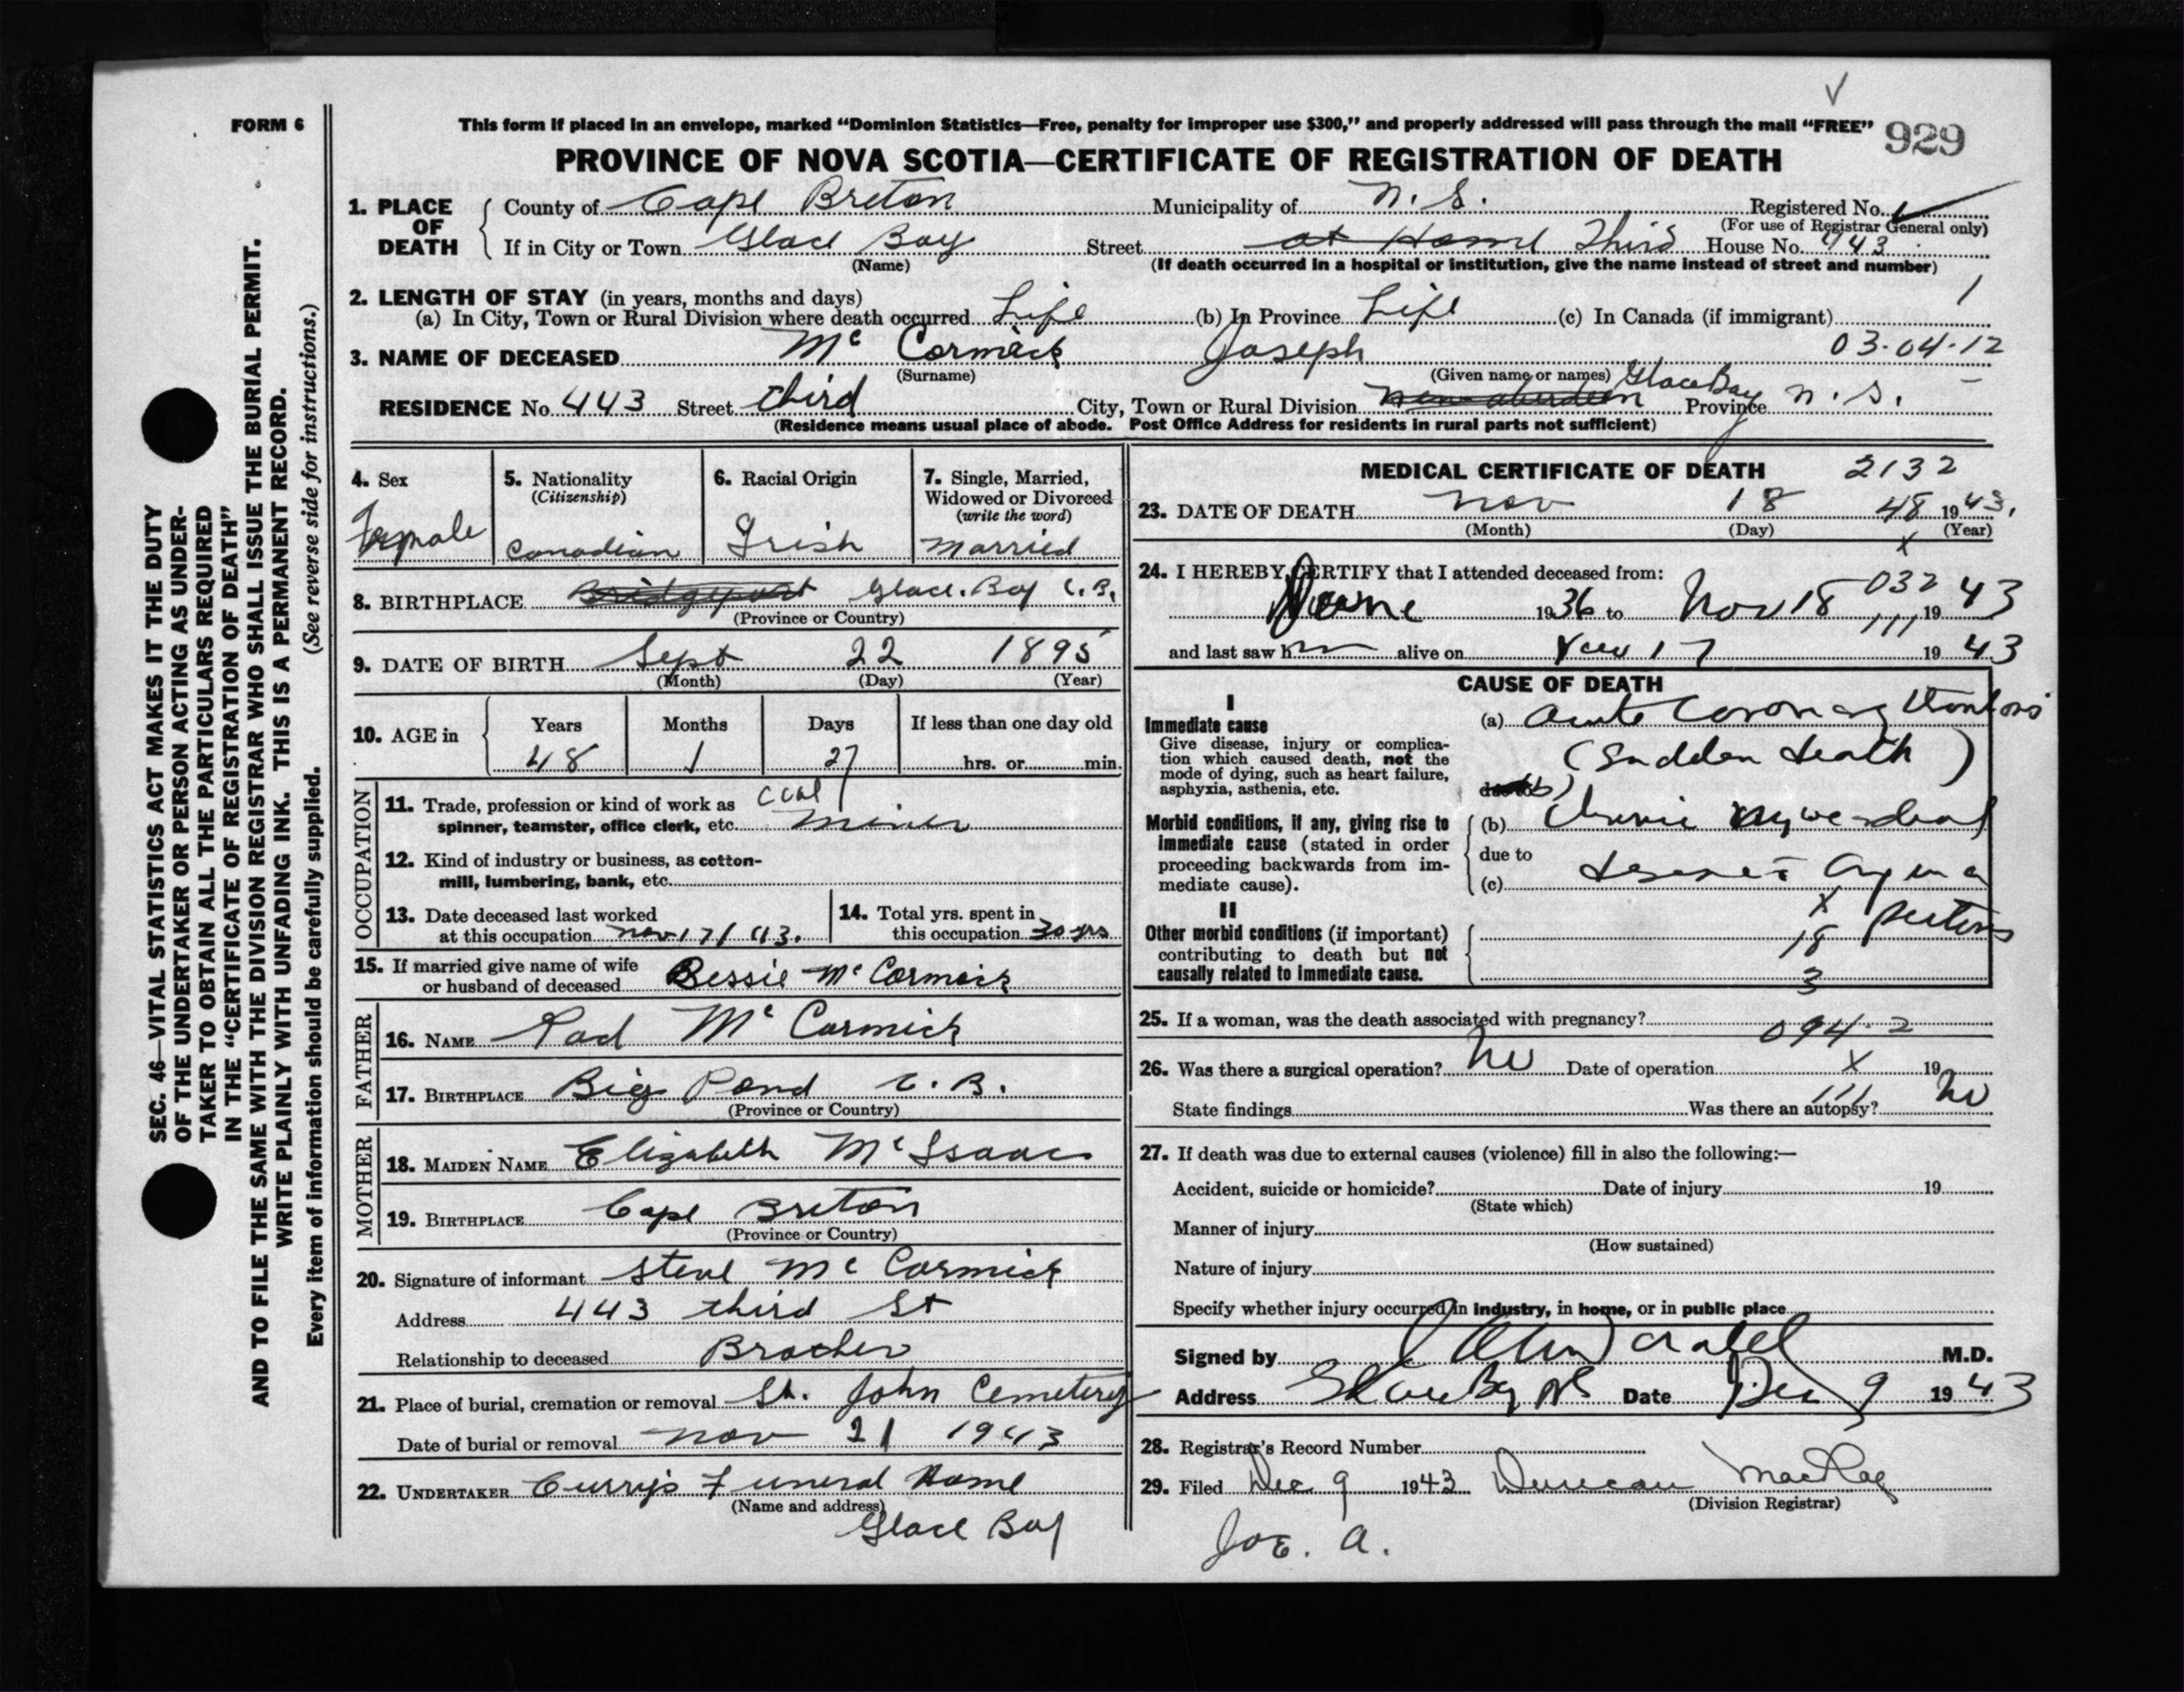 FORM 6
This form if placed in an envelope, marked “Dominion Statistics—Free, penalty for improper use $300,” and properly addressed will pass through the mail “FREE” 929
PROVINCE OF NOVA SCOTIA—CERTIFICATE OF REGISTRATION OF DEATH
SEC. 46—VITAL STATISTICS ACT MAKES IT THE DUTY
OF THE UNDERTAKER OR PERSON ACTING AS UNDER-
TAKER TO OBTAIN ALL THE PARTICULARS REQUIRED
IN THE “CERTIFICATE OF REGISTRATION OF DEATH”
AND TO FILE THE SAME WITH THE DIVISION REGISTRAR WHO SHALL ISSUE THE BURIAL PERMIT.
WRITE PLAINLY WITH UNFADING INK. THIS IS A PERMANENT RECORD.
Every item of information should be carefully supplied. (See reverse side for instructions.)
1. PLACE OF DEATH
County of Cape Breton Municipality of N. S. Registered No.
(For use of Registrar General only)
If in City or Town Glace Bay Street at Home Third House No. 443
(Name) (If death occurred in a hospital or institution, give the name instead of street and number)
2. LENGTH OF STAY (in years, months and days) 1
(a) In City, Town or Rural Division where death occurred Life (b) In Province Life (c) In Canada (if immigrant)
3. NAME OF DECEASED Mc Cormick Joseph 03-04-12
(Surname) (Given name or names)
RESIDENCE No. 443 Street third City, Town or Rural Division New Aberdeen Glace Bay Province N. S.
(Residence means usual place of abode. Post Office Address for residents in rural parts not sufficient)
4. Sex
male
5. Nationality
(Citizenship)
Canadian
6. Racial Origin
Irish
7. Single, Married,
Widowed or Divorced
(write the word)
Married
8. BIRTHPLACE Bridgeport Glace Bay C. B.
(Province or Country)
9. DATE OF BIRTH Sept 22 1895
(Month) (Day) (Year)
10. AGE in
Years Months Days If less than one day old
48 1 27 hrs. or min.
OCCUPATION
11. Trade, profession or kind of work as Coal
spinner, teamster, office clerk, etc. Miner
12. Kind of industry or business, as cotton-
mill, lumbering, bank, etc.
13. Date deceased last worked
at this occupation Nov 17/43.
14. Total yrs. spent in
this occupation 30 yrs
15. If married give name of wife
or husband of deceased Bessie McCormick
FATHER
16. NAME Rod McCormick
17. BIRTHPLACE Big Pond C. B.
(Province or Country)
MOTHER
18. MAIDEN NAME Elizabeth McIsaac
19. BIRTHPLACE Cape Breton
(Province or Country)
20. Signature of informant Steve McCormick
Address 443 third St
Relationship to deceased Brother
21. Place of burial, cremation or removal St. John Cemetery
Date of burial or removal Nov 21 1943
22. UNDERTAKER Curry's Funeral Home
(Name and address)
Glace Bay
MEDICAL CERTIFICATE OF DEATH 2132
23. DATE OF DEATH Nov 18 48 1943.
(Month) (Day) (Year)
x
24. I HEREBY CERTIFY that I attended deceased from:
1936 to Nov 18 032 1943
111
and last saw h alive on Nov 17 1943
CAUSE OF DEATH
I
Immediate cause
Give disease, injury or complica-
tion which caused death, not the
mode of dying, such as heart failure,
asphyxia, asthenia, etc.
(a) Acute Coronary
(Sudden death)
Morbid conditions, if any, giving rise to
immediate cause (stated in order
proceeding backwards from im-
mediate cause).
(b) Chronic myocardial
due to
(c)
x
II
Other morbid conditions (if important)
contributing to death but not
causally related to immediate cause.
18
3
25. If a woman, was the death associated with pregnancy?
094-2
26. Was there a surgical operation? No Date of operation x 19
111
State findings Was there an autopsy? No
27. If death was due to external causes (violence) fill in also the following:—
Accident, suicide or homicide? Date of injury 19
(State which)
Manner of injury
(How sustained)
Nature of injury
Specify whether injury occurred in industry, in home, or in public place
Signed by M.D.
Address Glace Bay NS Date Dec 9 1943
28. Registrar’s Record Number
29. Filed Dec 9 1943 Duncan MacRae
(Division Registrar)
Joe. A.